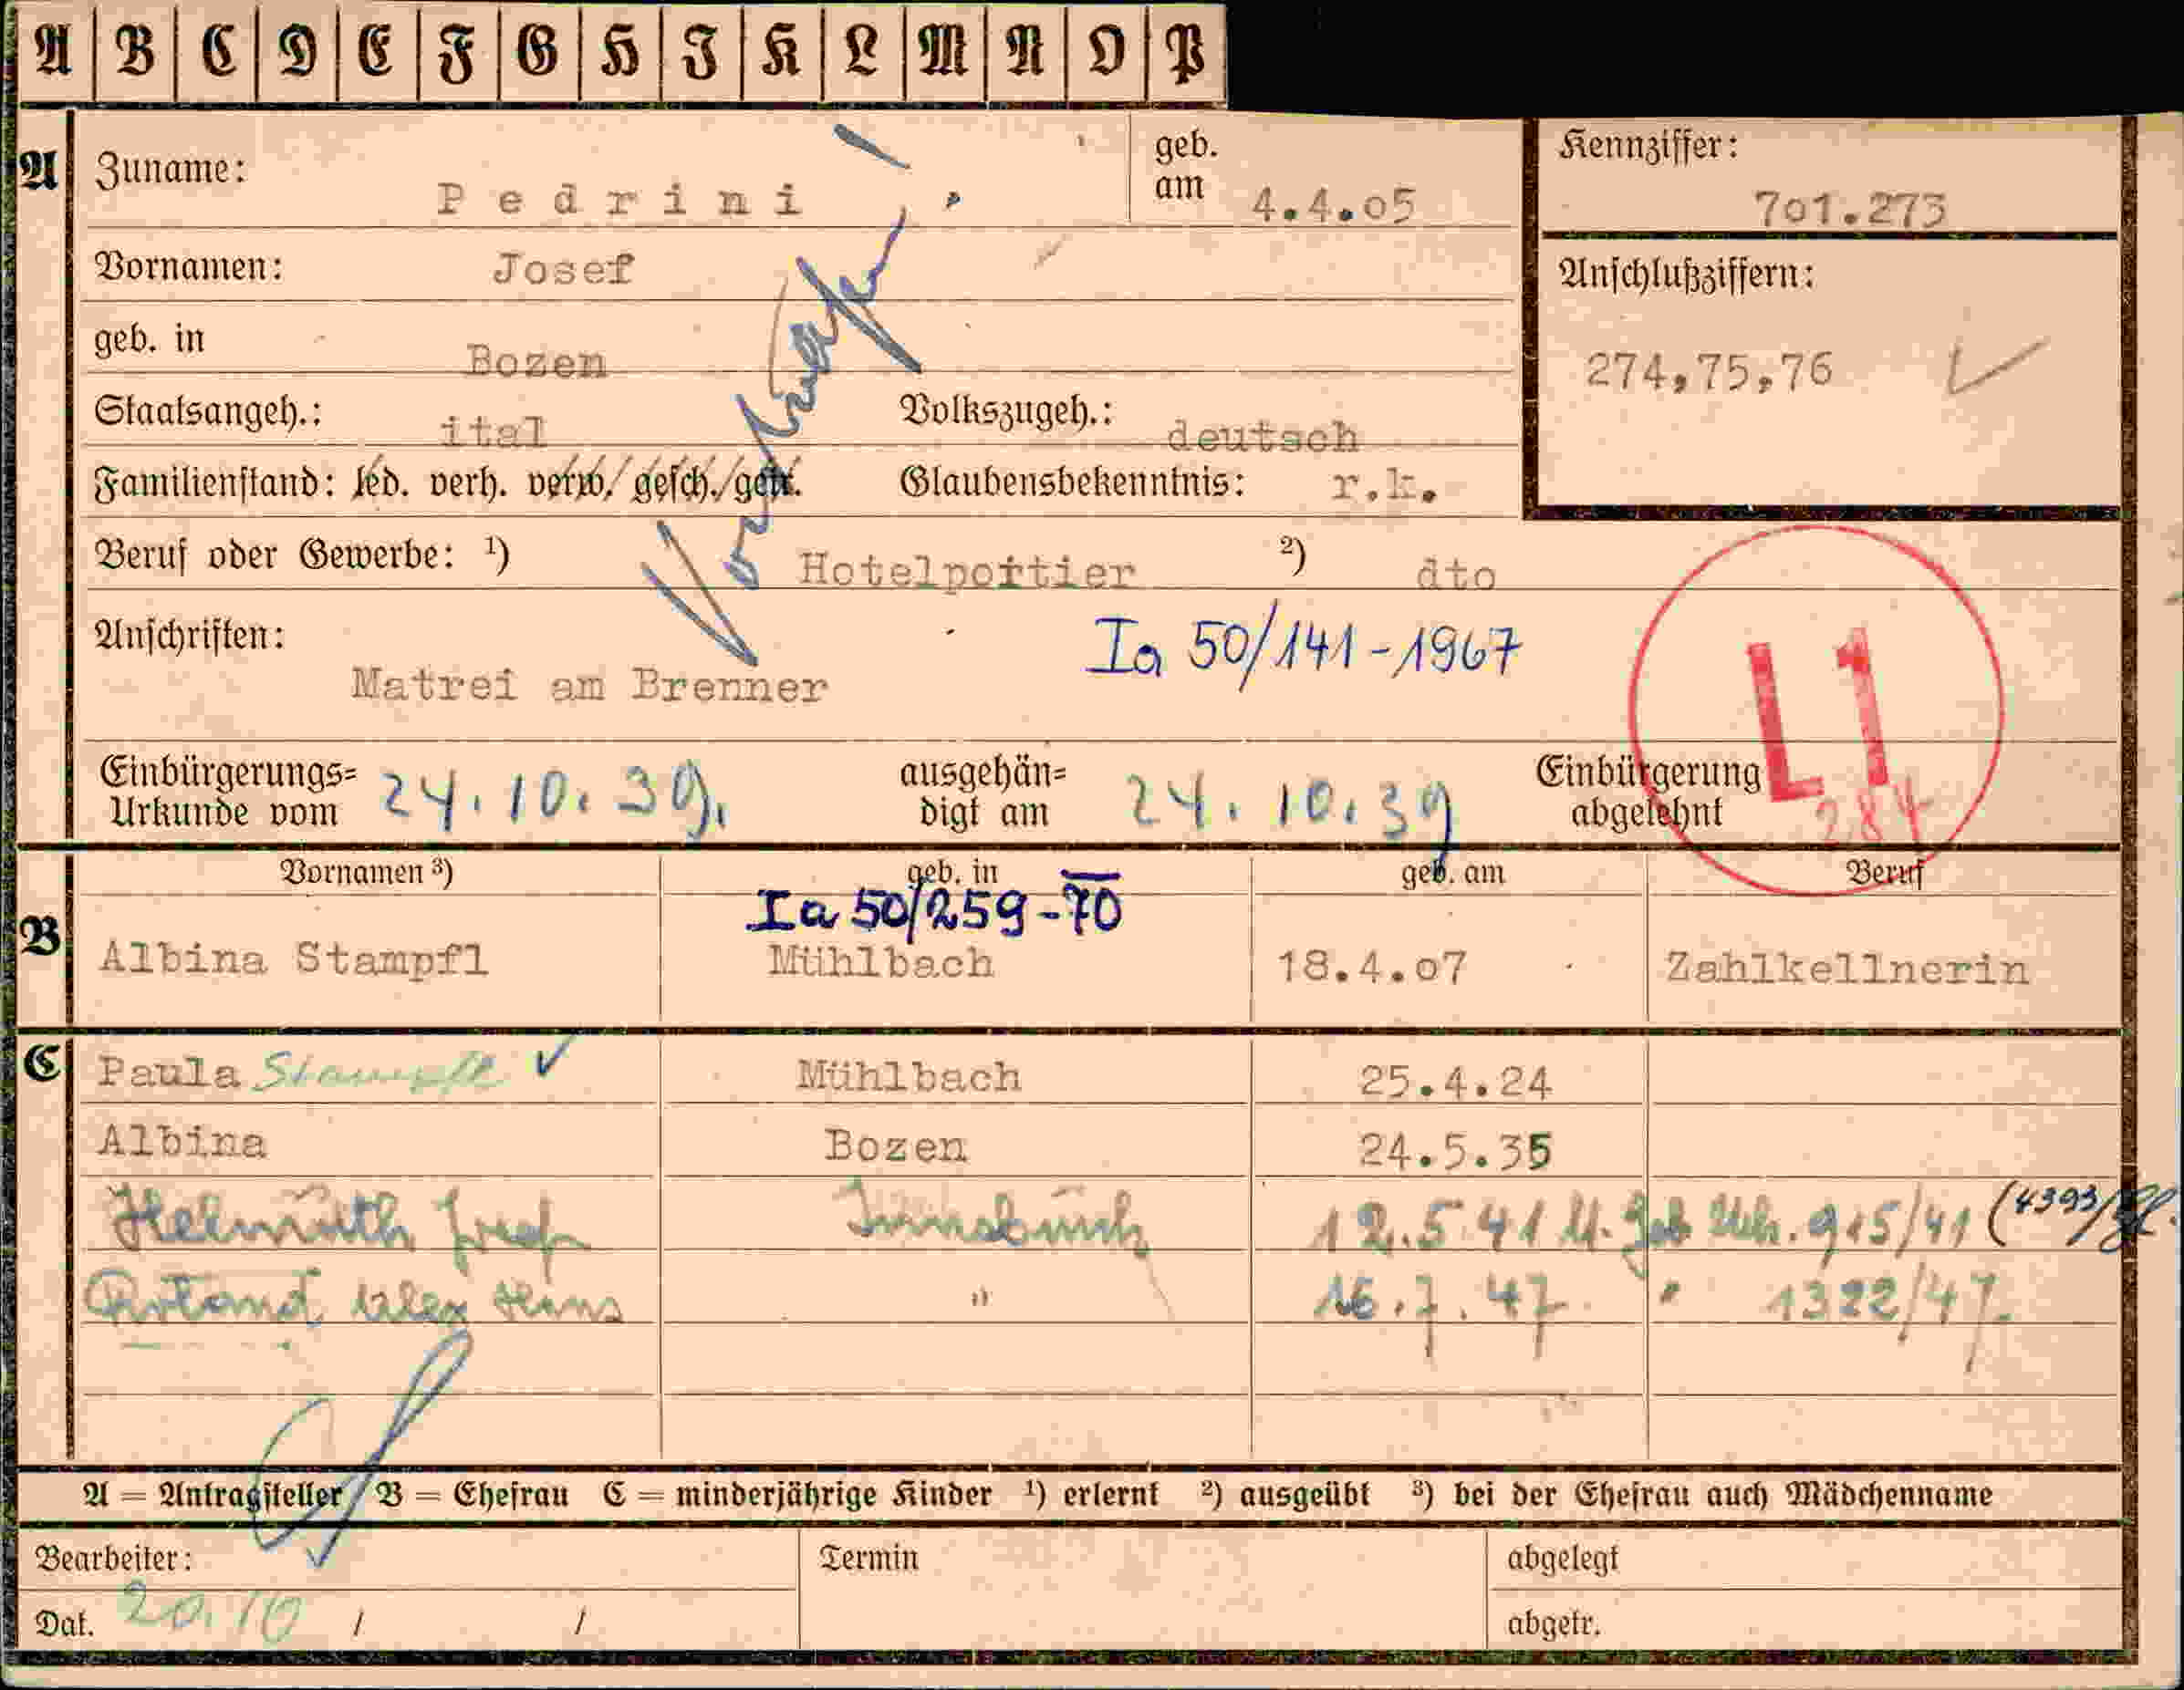 A B C D E F G H J K L M N O P
A Zuname: Pedrini geb. am 4.4.05
Kennziffer: 701.273
Vornamen: Josef
Anschlußziffern: 274,75,76
geb. in Bozen
Staatsangeh.: ital Volkszugeh.: deutsch
Familienstand: led. verh. verw. gesch./getr. Glaubensbekenntnis: r.k.
Beruf oder Gewerbe: 1) Hotelportier 2) dto
Vortragen!
Anschriften: Matrei am Brenner
Ia 50/141-1967
L1
284
Einbürgerungs=Urkunde vom 24.10.39. ausgehän=digt am 24.10.39 Einbürgerung abgelehnt
Vornamen 3) geb. in geb. am Beruf
Ia 50/259-70
B Albina Stampfl Mühlbach 18.4.07 Zahlkellnerin
C Paula Stampfl Mühlbach 25.4.24
Albina Bozen 24.5.35
Helmuth Josef Innsbruck 12.5.41 lt. Geb. Urk. 915/41 (4393/
Roland Alex Hans " 16.7.47 " 1322/47
A = Antragsteller B = Ehefrau C = minderjährige Kinder 1) erlernt 2) ausgeübt 3) bei der Ehefrau auch Mädchenname
Bearbeiter: Termin abgelegt
Dat. 20.10 / / abgetr.